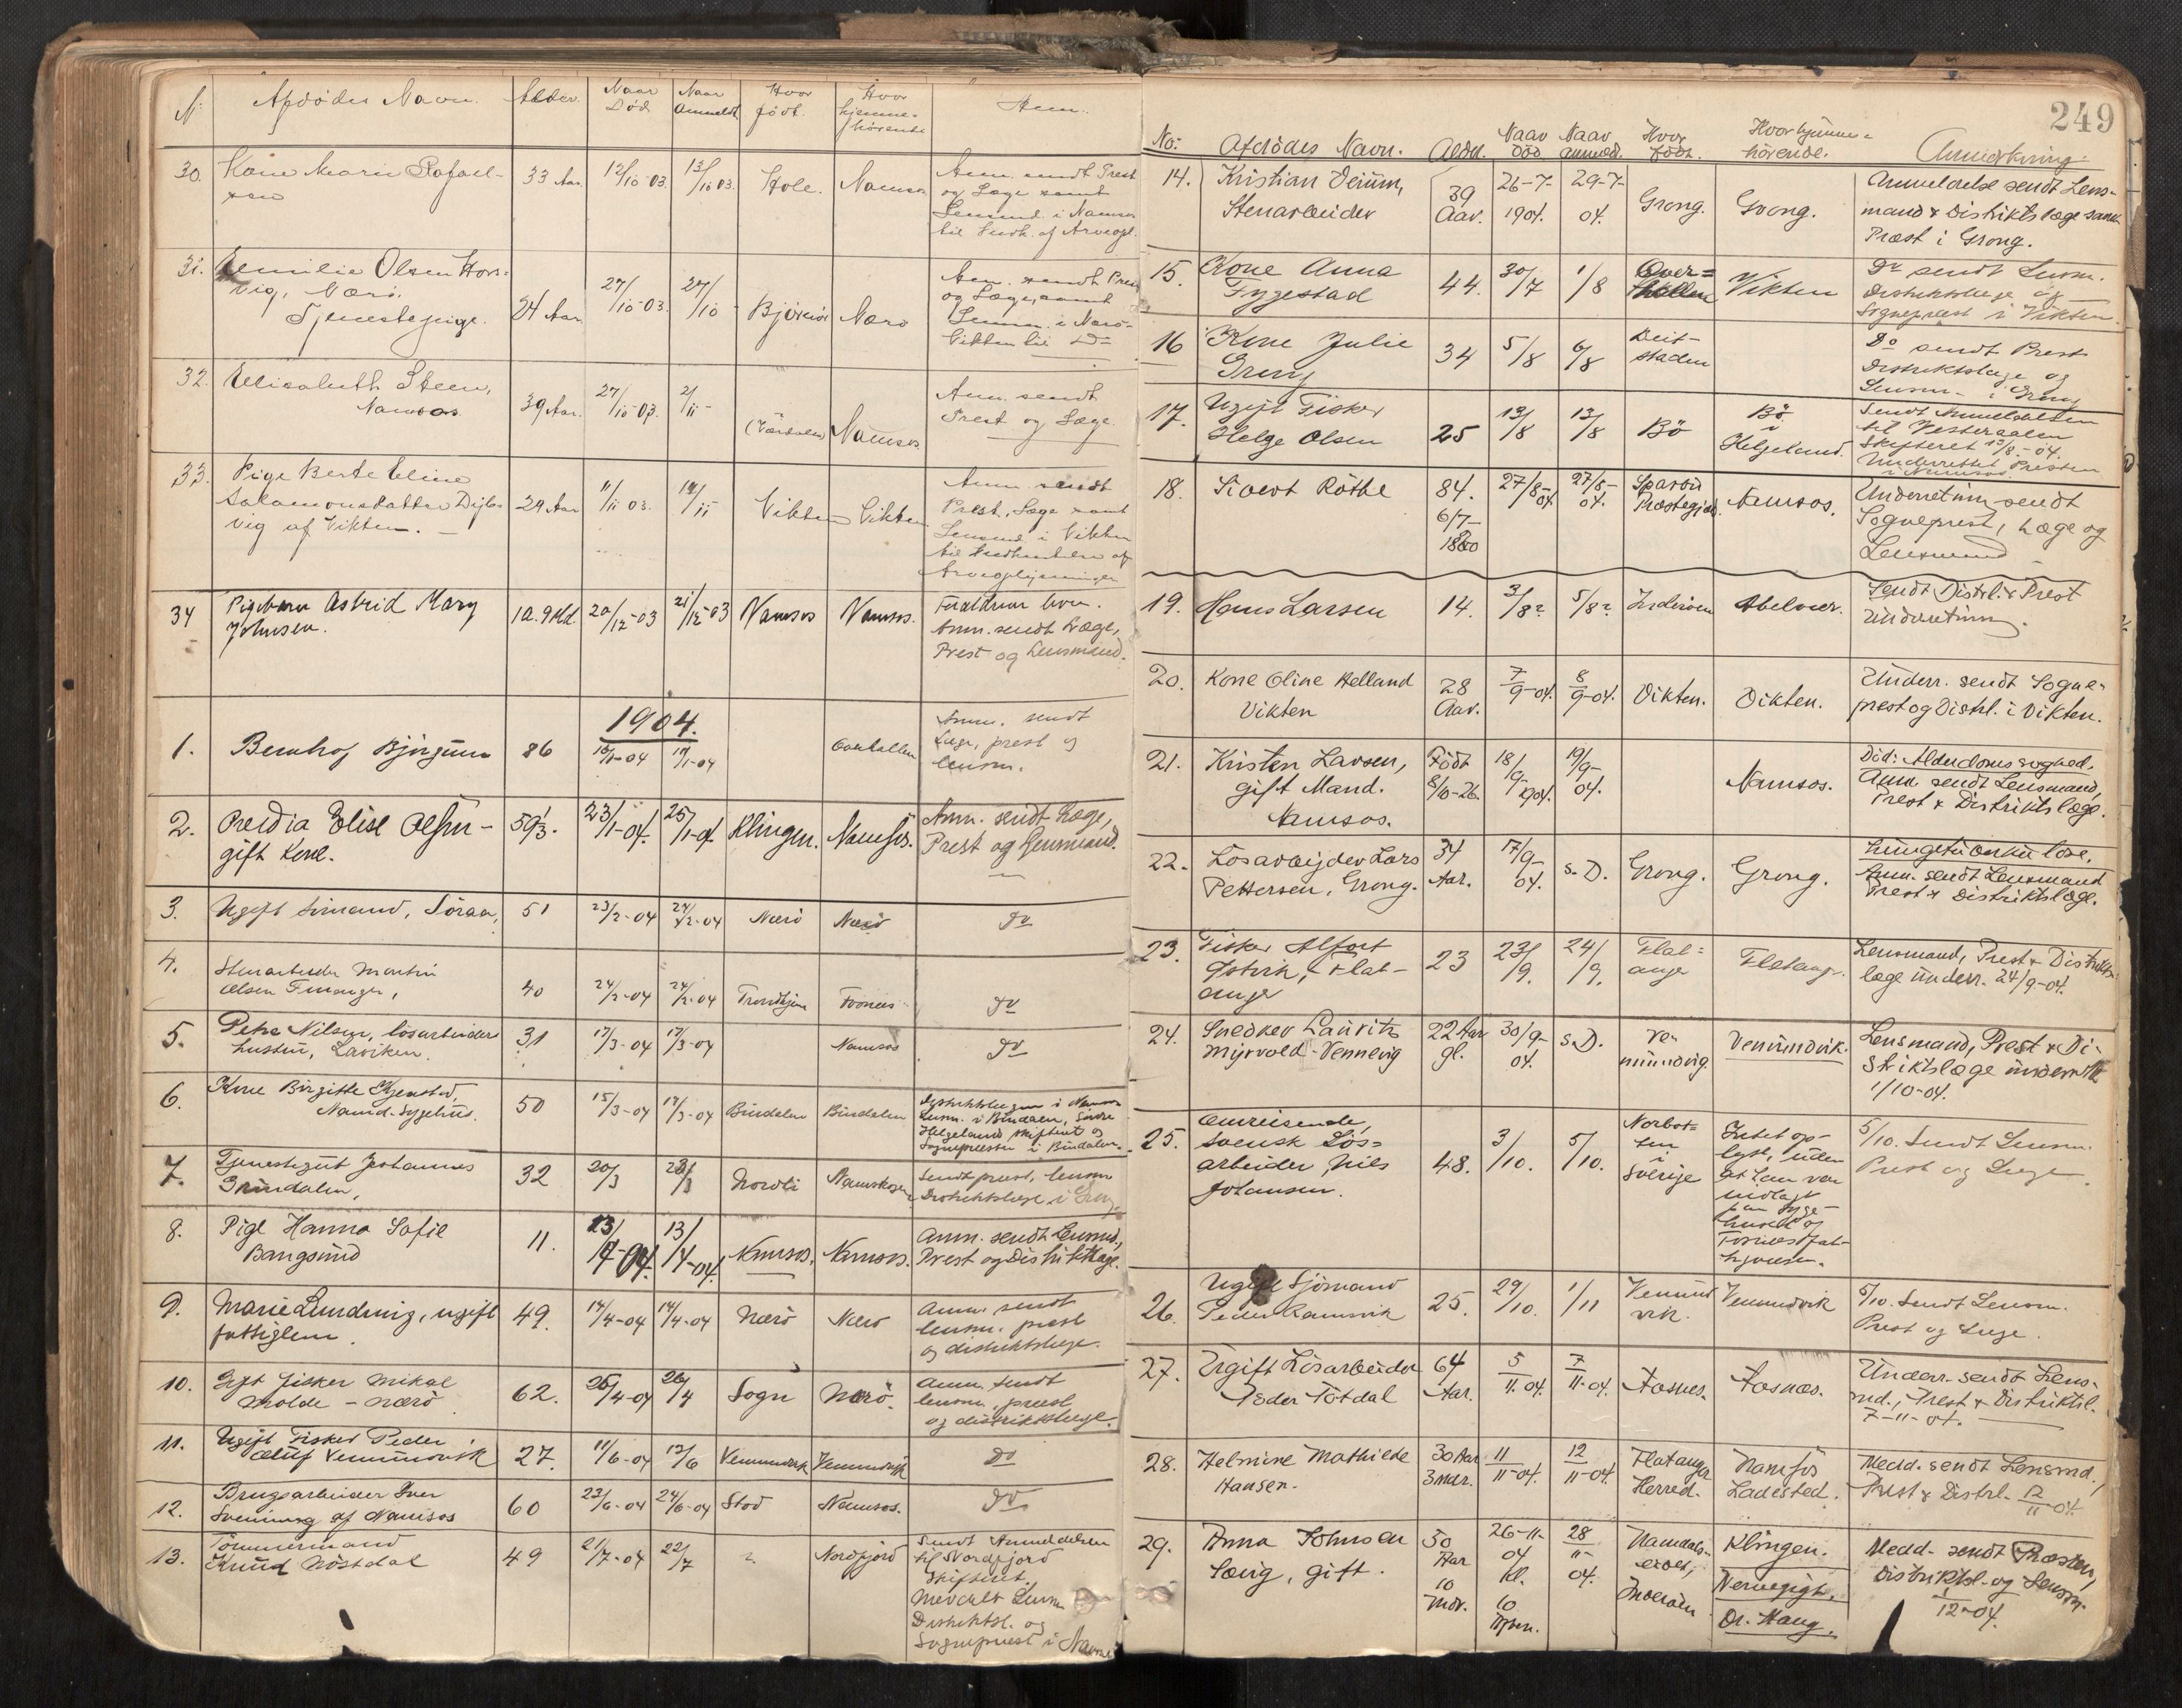 N: Afdödes Navn. Alder. Naar Död Naar Anmeldt Hvor födt. Hvor hjemme-hörende Anm.
30. Kone Marie Rafael-
sen 33 Aar 12/10-03. 13/10 03. Hole. Namsos
Anm. sendt Prest
og Læge samt
Lensmd. i Namsos
til Indh. af Arveopl.
31. Emilie Olsen Hors-
vig, Nærö.
Tjenestepige. 24 Aar 27/10-03. 27/10 - Björnör Nærö
Anm. sendt Prest
og Læge, samt
Lensm. i Nærö-
Vikten til Do
32. Elisabeth Steen,
Namsos 39 Aar. 27/10-03. 2/11- (Værdalen) Namsos
Anm. sendt
Prest og Læge.
33. Pige Berte Eline
Salamonsdatter
vig af Vikten. 29 Aar 11/11 03. 14/11 Vikten Vikten
Anm. sendt
Prest, Læge samt
Lensmd. i Vikten
til Indhentelse af
Arveoplysninger
34 Pigebarn Astrid Mary
Johnsen. 1 A. 9 Md. 20/12-03 21/12-03 Namsos Namsos.
Forældrene lever.
Anm. sendt Læge,
Prest og Lensmand.
1904.
1. Björgum 86 16/1-04 17/1-04 Overhallen
Anm. sendt
Læge, prest og
lensm.
2. Elise Olsen-
gift Kone. 59 1/3. 23/1-04. 25/1-04 Klingen. Namsos.
Anm. sendt Læge,
Prest og Lensmand.
3. Ugift Sömand, Söraa, 51 23/2-04 24/2-04 Nærö Nærö Do
4. Stenarbeider Martin
Olsen 40 24/2-04 24/2-04 Trondhjem Fosnes Do
5. Petra Nilsen, lösarbeider
hustru, Laviken. 31 17/3-04 17/3-04 Namsos Do
6. Kone Birgitte
Namd. Sygehus. 50 15/3-04 17/3-04 Bindalen Bindalen
Distriktslægen i Namsos
Lensm. i Bindalen, Söndre
Helgelands skifteret og
Sognepresten i Bindalen.
7. Tjenestegut Johannes
Grindalen, 32 20/3 23/3 Nordli Namskogen
Sendt prest, lensm
Distriktslæge i Grong.
8. Pige Hanna Sofie
Bangsund 11. 13/4-04. 13/4-04. Namsos. Namsos.
Anm. sendt Lensmd.,
Prest og Distriktslæge.
9. Marie Lundring, ugift
fattiglem. 49. 14/4-04 14/4-04 Nærö Nærö
Anm. sendt
lensm. prest
og distriktslæge.
10. Gift fisker Mikal
Molde - Nærö. 62. 25/4-04 26/4 Sogn Nærö.
Anm. sendt
lensm., prest
og distriktslæge.
11. Ugift Fisker Peder
Oluf Vemundvik 27. 11/6-04 12/6 Vemundvik Vemundvik Do
12. Brugsarbeider Iver
Svenning af Namsos 60 23/6-04 24/6-04 Stod Namsos. Do
13. Tömmermand
Knud Nöstdal 49 21/7-04 22/7 ? Nordfjord
Sendt Anmeldelsen
til Nordfjord
Skifteret.
Meddelt Lensm
Distriktsl. og
Sogneprest i Namsos
249
No: Afdödes Navn. Alder. Naar död Naar anmeld. Hvor födt. Hvor hjemme-hörende. Anmerkning.
14. Kristian Deium,
Stenarbeider 39 Aar. 26-7-1904. 29-7-04. Grong. Grong.
Anmeldelse sendt Lens-
mand & Distriktslæge samt
Præst i Grong.
15. Kone Anna
Fygestad 44. 30/7 1/8 Over=hallen Vikten
Do sendt Lensm.
Distriktslæge og
Sogneprest i Vikten.
16 Kone Julie
Grong 34 5/8 6/8
Do sendt Prest
Distriktslæge og
Lensm. i Grong
17. Ugift Fisker
Helge Olsen 25 13/8 13/8 Bö Bö i Helgeland.
Sendt Anmeldelsen
til Vesteraalen
Skifteret 13/8-04.
Underrettet Presten
i Namsos
18. Sivert Röthe 84. 6/7-1820 27/8-04 27/8-04. Sparbu Præstegjeld. Namsos.
Underretning sendt
Sogneprest, Læge og
Lensmand
19. Hans Larsen 14. 3/8? 5/8? Inderöen Abelvær.
Sendt Distrl. & Prest
Underretning.
20. Kone Oline Helland
Vikten 28 Aar. 7/9-04. 8/9-04. Vikten. Vikten.
Underr. sendt Sogne-
prest og Distrl. i Vikten.
21. Kristen Larsen,
gift Mand.
Namsos. Födt 8/10-26. 18/9-1904. 19/9-04. Namsos.
Död: Alderdomssvaghed.
Anm. sendt Lensmand,
Prest & Distriktslæge.
22. Lösarbejder Lars
Pettersen, Grong. 34 Aar. 17/9-04. s.D. Grong. Grong.
Lungetuberkulose.
Anm. sendt Lensmand
Prest & Distriktslæge.
23. Fisker Alfort
Östvik, Flat-
anger 23 23/9. 24/9. Flat=anger Flatanger.
Lensmand, Prest & Distrikts-
læge underr. 24/9-04.
24. Snedker Lauritz
Myrvold-Vennevig 22 Aar gl. 30/9-04. s.D. Ve-mundvig. Vemundvik.
Lensmand, Prest & Di-
striktslæge underrett
1/10-04.
25. Omreisende,
svensk Lös=
arbeider Nils
Johansen. 48. 3/10. 5/10. Norbot=ten i Sverige
Intet op-
lyst, uden
at han var
indlagt
paa Syge-
huset af
Fosnes fat-
tigvæsen.
5/10. Sendt Lensm.
Prest og Læge.
26. Ugift Sjömand
Peder Ramsvik 25. 29/10. 1/11 Vemund vik. Vemundvik
5/10. Sendt Lensm.
Prest og Læge.
27. Ugift Lösarbeider
Peder Totdal 64 Aar. 5/11.04. 7/11-04. Fosnes. Fosnæs.
Underr. sendt Lens-
md., Prest & Distriktsl.
7-11-04.
28. Helmine Mathilde
Hansen. 30 Aar 3 mdr. 11/11-04. 12/11-04. Flatanger Herred. Namsos Ladested.
Medd. sendt Lensmd.,
Prest & Distrl. 12/11-04.
29. Anna Johnsen
Sævig, gift. 50 Aar 10 mdr. 26-11-04 Kl. 10 28/11-04. Namdals-eidet, Klingen.
Dr. Haug.
Medd. sendt Præsten,
Distriktsl. og Lensm.
1/12-04.